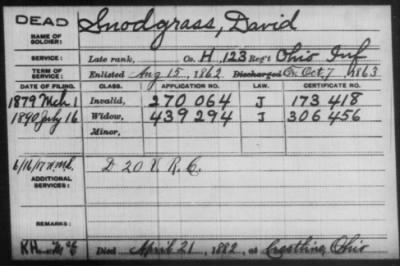 DEAD
NAME OF SOLDIER:
Snodgrass, David
SERVICE:
Late rank, Co. H, 123 Reg't Ohio Inf
TERM OF SERVICE:
Enlisted Aug 15, 1862 Discharged Oct, 7 1863
DATE OF FILING. CLASS. APPLICATION NO. LAW. CERTIFICATE NO.
1879 Mch 1 Invalid, 270 064 J 173 418
1890 July 16 Widow, 439 294 J 306 456
Minor,
6/16/17
ADDITIONAL SERVICES:
D 20 V. R. C.
REMARKS:
Died April 21, 1882, at Crestline, Ohio